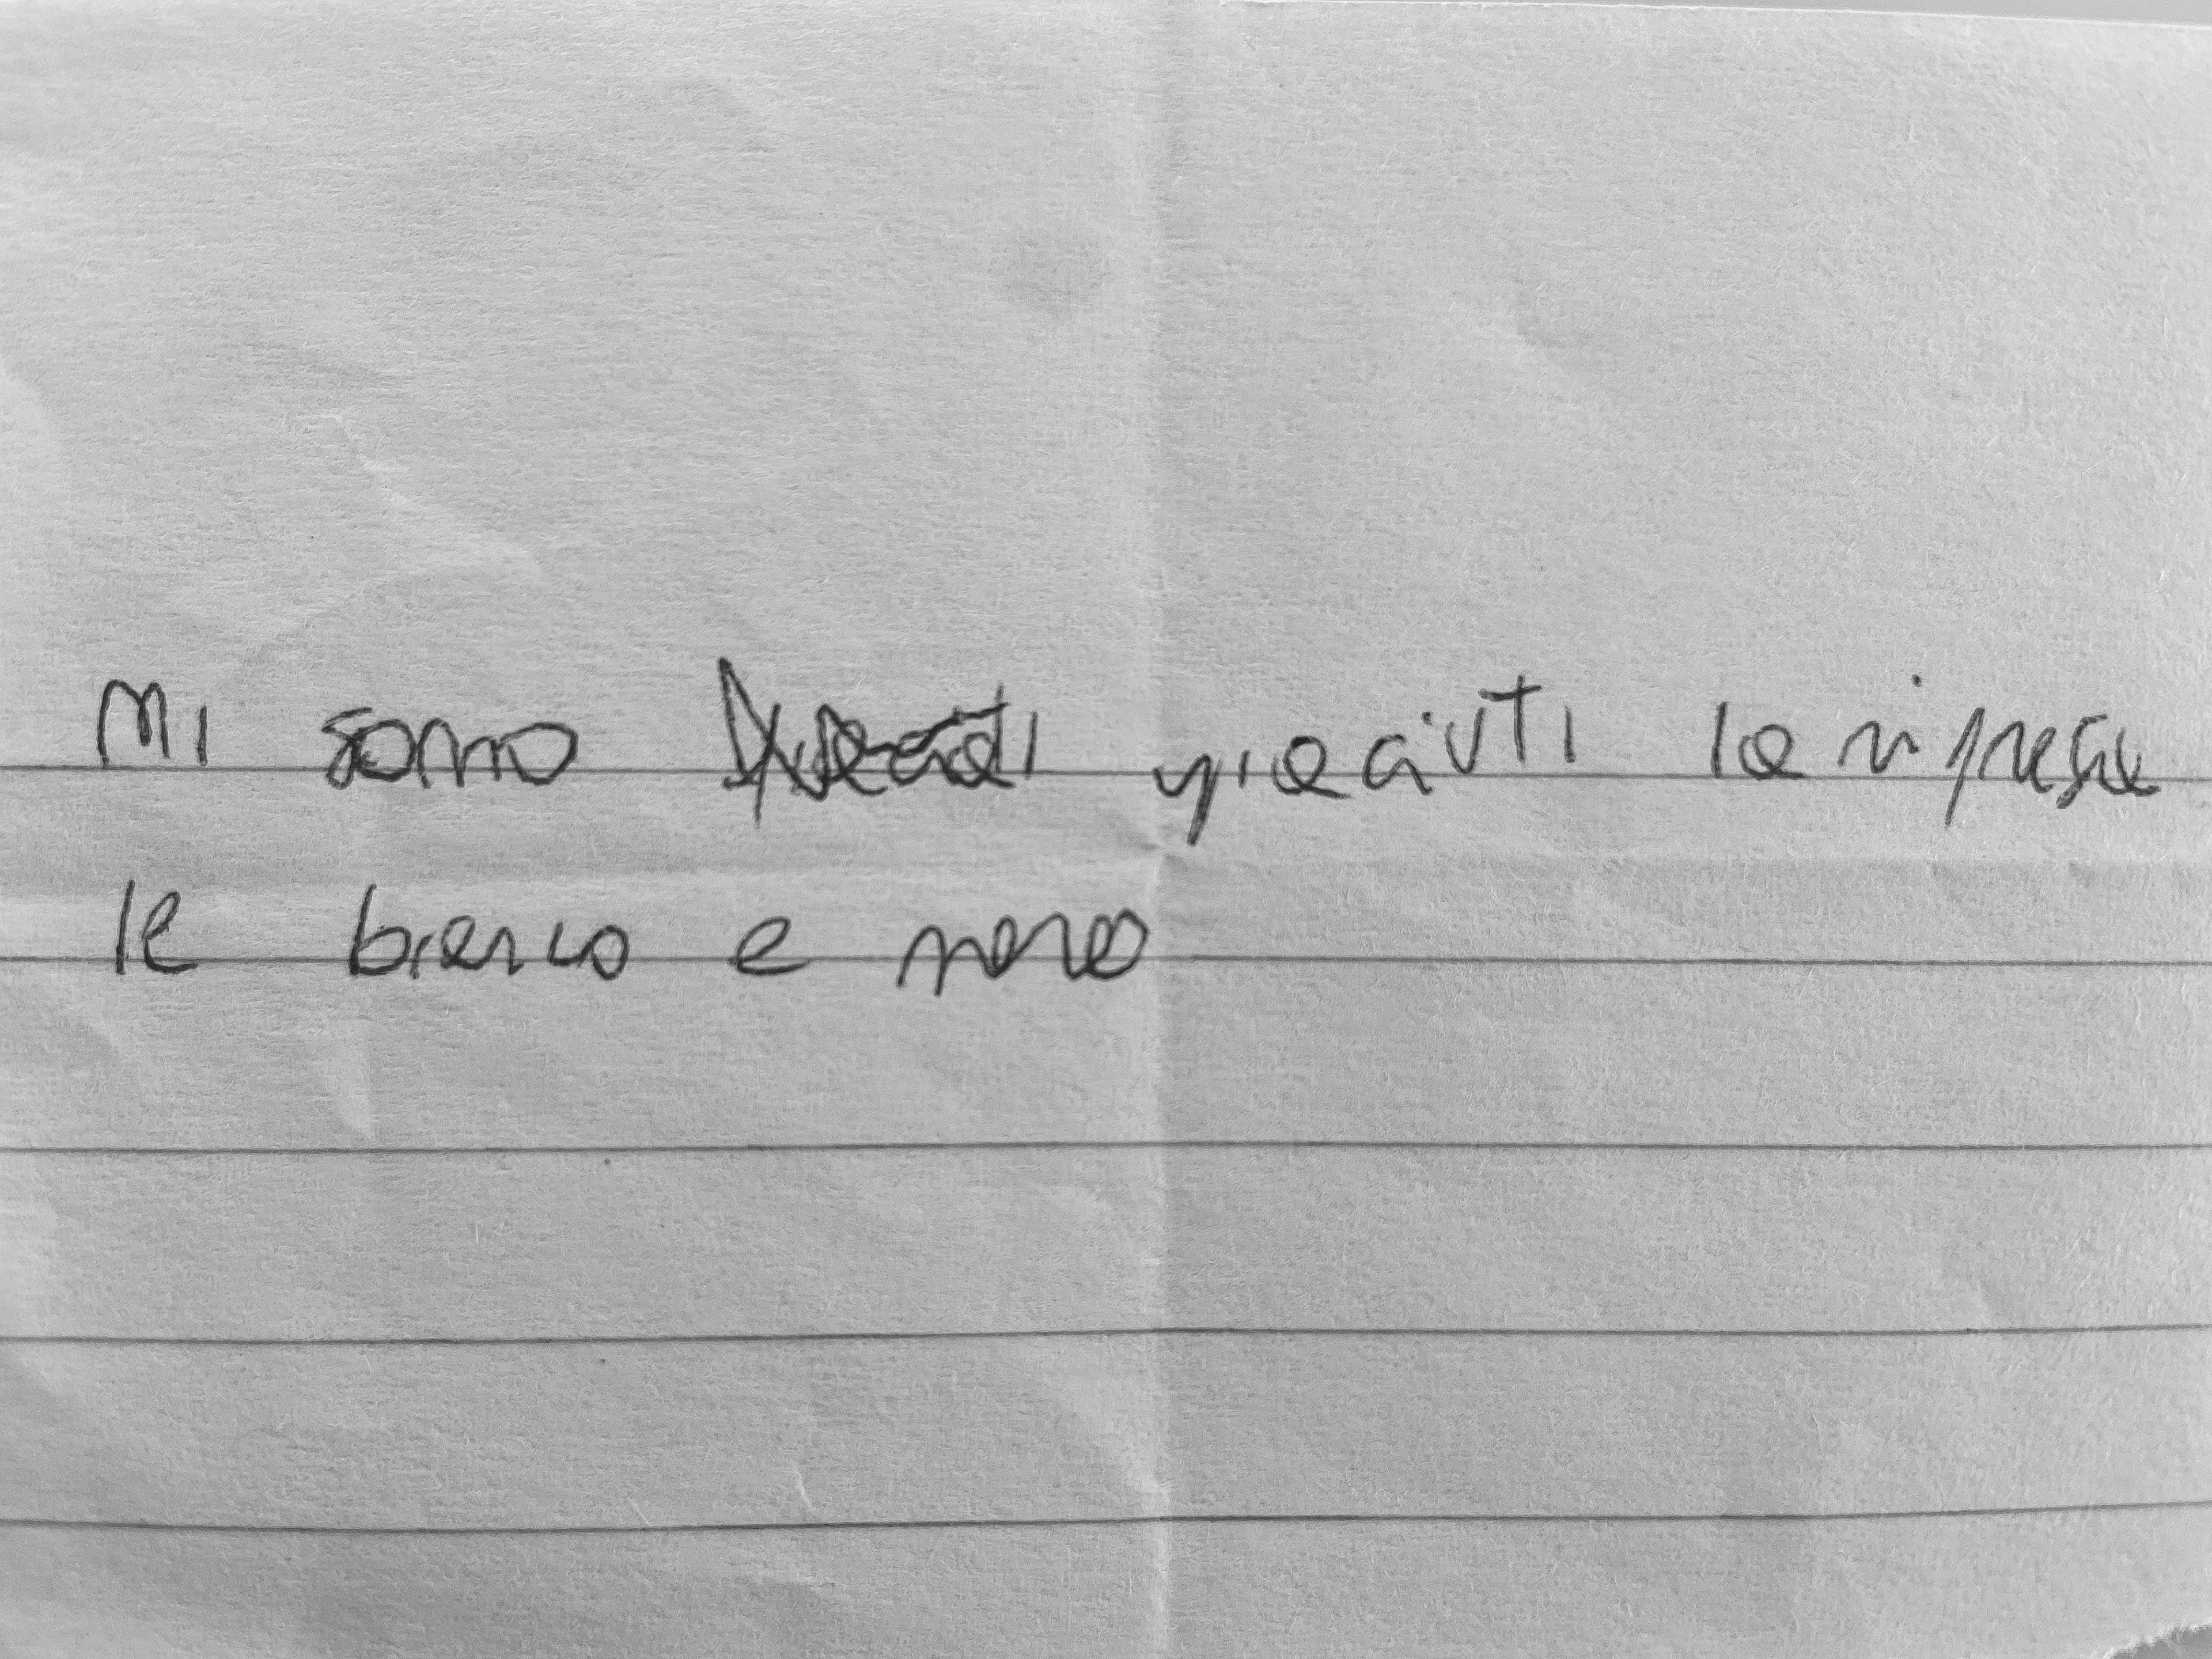 Mi sono piaciuti la riprese
le bianco e nero